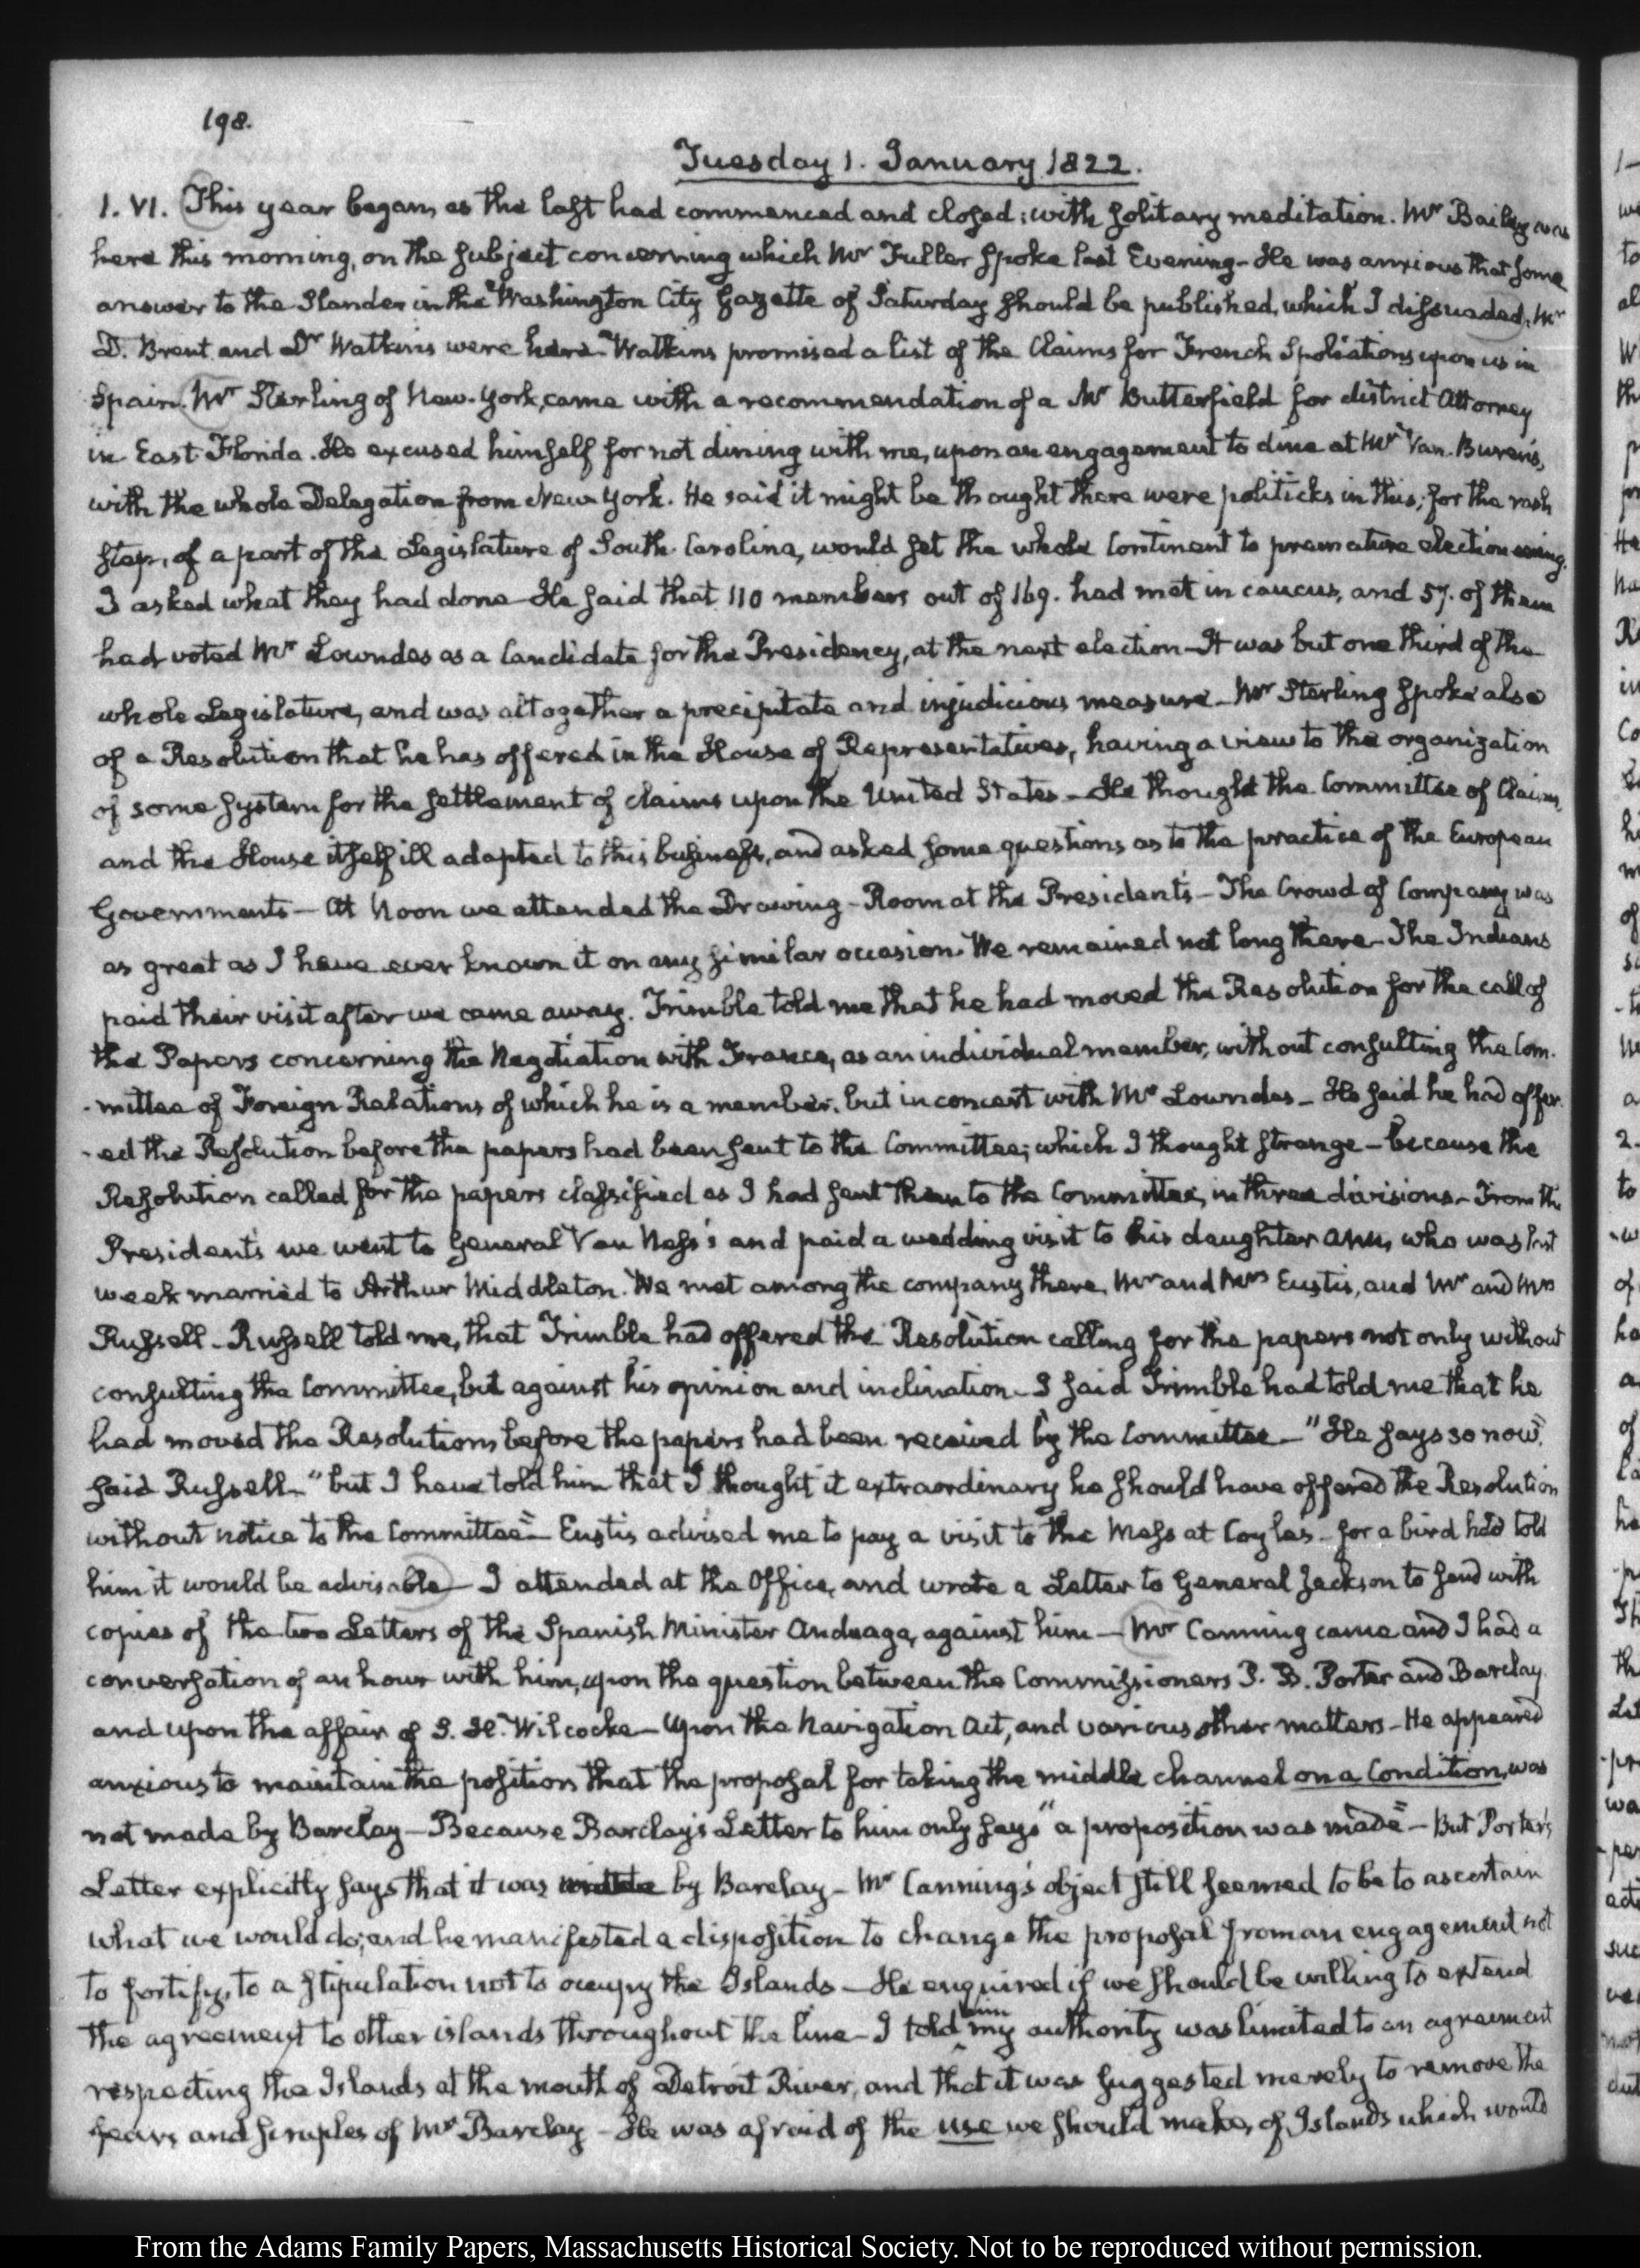 198.
Tuesday 1. January 1822.
1. VI. This year began, as the last had commenced and closed; with solitary meditation. Mr Bailey was
here this morning, on the subject concerning which Mr Fuller spoke last Evening- He was anxious that some
answer to the Slander in the Washington City Gazette of Saturday should be published, which I dissuaded. Mr
D. Brent and Dr Watkins were here- Watkins promised a list of the Claims for French Spoliations upon us in
Spain. Mr Sterling of New-York, came with a recommendation of a Mr Butterfield for district Attorney
in East-Florida. He excused himself for not dining with me, upon an engagement to dine at Mr Van-Buren's,
with the whole Delegation from New-York. He said it might be thought there were politicks in this; for the rash
step, of a part of the Legislature of South-Carolina, would set the whole Continent to premature electioneering.
I asked what they had done- He said that 110 members out of 169. had met in caucus, and 57. of them
had voted Mr Lowndes as a Candidate for the Presidency, at the next election- It was but one third of the
whole Legislature, and was altogether a precipitate and injudicious measure- Mr Sterling spoke also
of a Resolution that he has offered in the House of Representatives, having a view to the organization
of some system for the settlement of claims upon the United States- He thought the Committee of Claims,
and the House itself ill adapted to this business, and asked some questions as to the practice of the European
Governments- At Noon we attended the Drawing-Room at the President's- The Crowd of Company was
as great as I have ever known it on any similar occasion. We remained not long there- The Indians
paid their visit after we came away. Trimble told me that he had moved the Resolution for the call of
the Papers concerning the Negotiation with France, as an individual member, without consulting the Com-
-mittee of Foreign Relations of which he is a member, but in concert with Mr Lowndes- He said he had offer-
-ed the Resolution before the papers had been sent to the Committee; which I thought strange- because the
Resolution called for the papers classified as I had sent them to the Committee, in three divisions- From the
President's we went to General Van Ness's and paid a wedding visit to his daughter Ann, who was last
week married to Arthur Middleton. We met among the company there, Mr and Mrs Eustis, and Mr and Mrs
Russell- Russell told me, that Trimble had offered the Resolution calling for the papers not only without
consulting the Committee, but against his opinion and inclination- I said Trimble had told me that he
had moved the Resolutions before the papers had been received by the Committee- "He says so now"
said Russell- "but I have told him that I thought it extraordinary he should have offered the Resolution
without notice to the Committee"- Eustis advised me to pay a visit to the Mess at Coyle's- for a bird had told
him it would be advisable- I attended at the Office, and wrote a Letter to General Jackson to send with
copies of the two Letters of the Spanish Minister Anduaga, against him- Mr Canning came and I had a
conversation of an hour with him, upon the question between the Commissioners P. B. Porter and Barclay
and upon the affair of S. H. Wilcocke- Upon the Navigation Act, and various other matters- He appeared
anxious to maintain the position that the proposal for taking the middle channel on a Condition, was
not made by Barclay- Because Barclay's Letter to him only says "a proposition was made"- But Porter's
Letter explicitly says that it was by Barclay- Mr Canning's object still seemed to be to ascertain
what we would do; and he manifested a disposition to change the proposal from an engagement not
to fortify, to a stipulation not to occupy the Islands- He enquired if we should be willing to extend
the agreement to other islands throughout the line- I told him my authority was limited to an agreement
respecting the Islands at the mouth of Detroit River, and that it was suggested merely to remove the
fears and scruples of Mr Barclay- He was afraid of the use we should make, of Islands which would
From the Adams Family Papers, Massachusetts Historical Society. Not to be reproduced without permission.